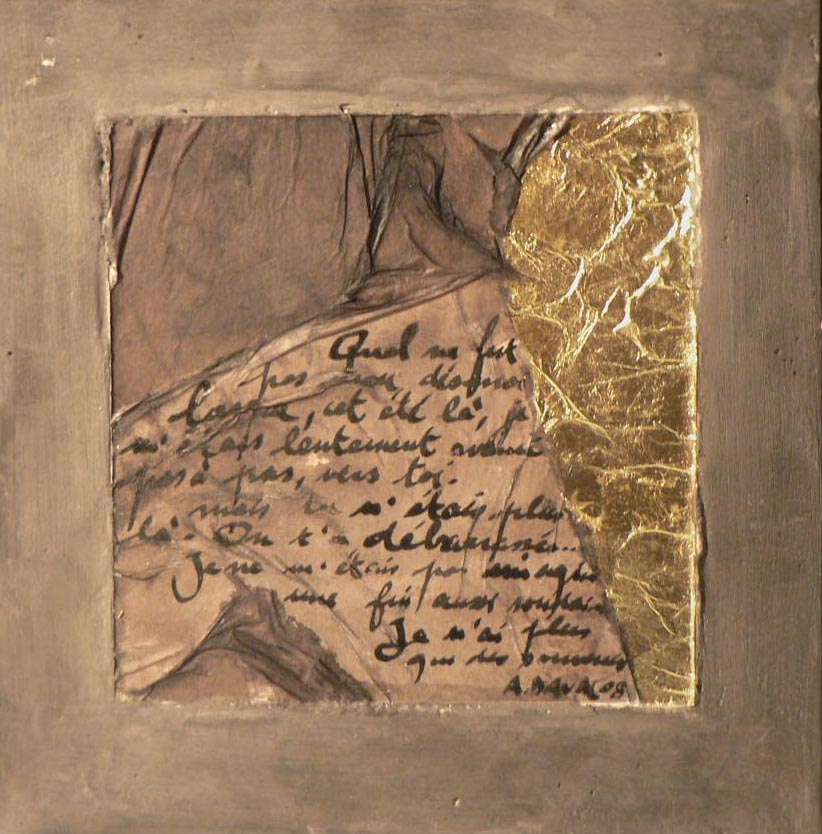 Quel ne fut
pas mon désarroi
Lorsque, cet été là, je
m'étais lentement avancé
pas à pas, vers toi.
mais tu n'étais plus
là. On t'a débarrassé...
Je ne m'étais pas imaginé
une fin aussi soudaine
Je n'ai plus
que des